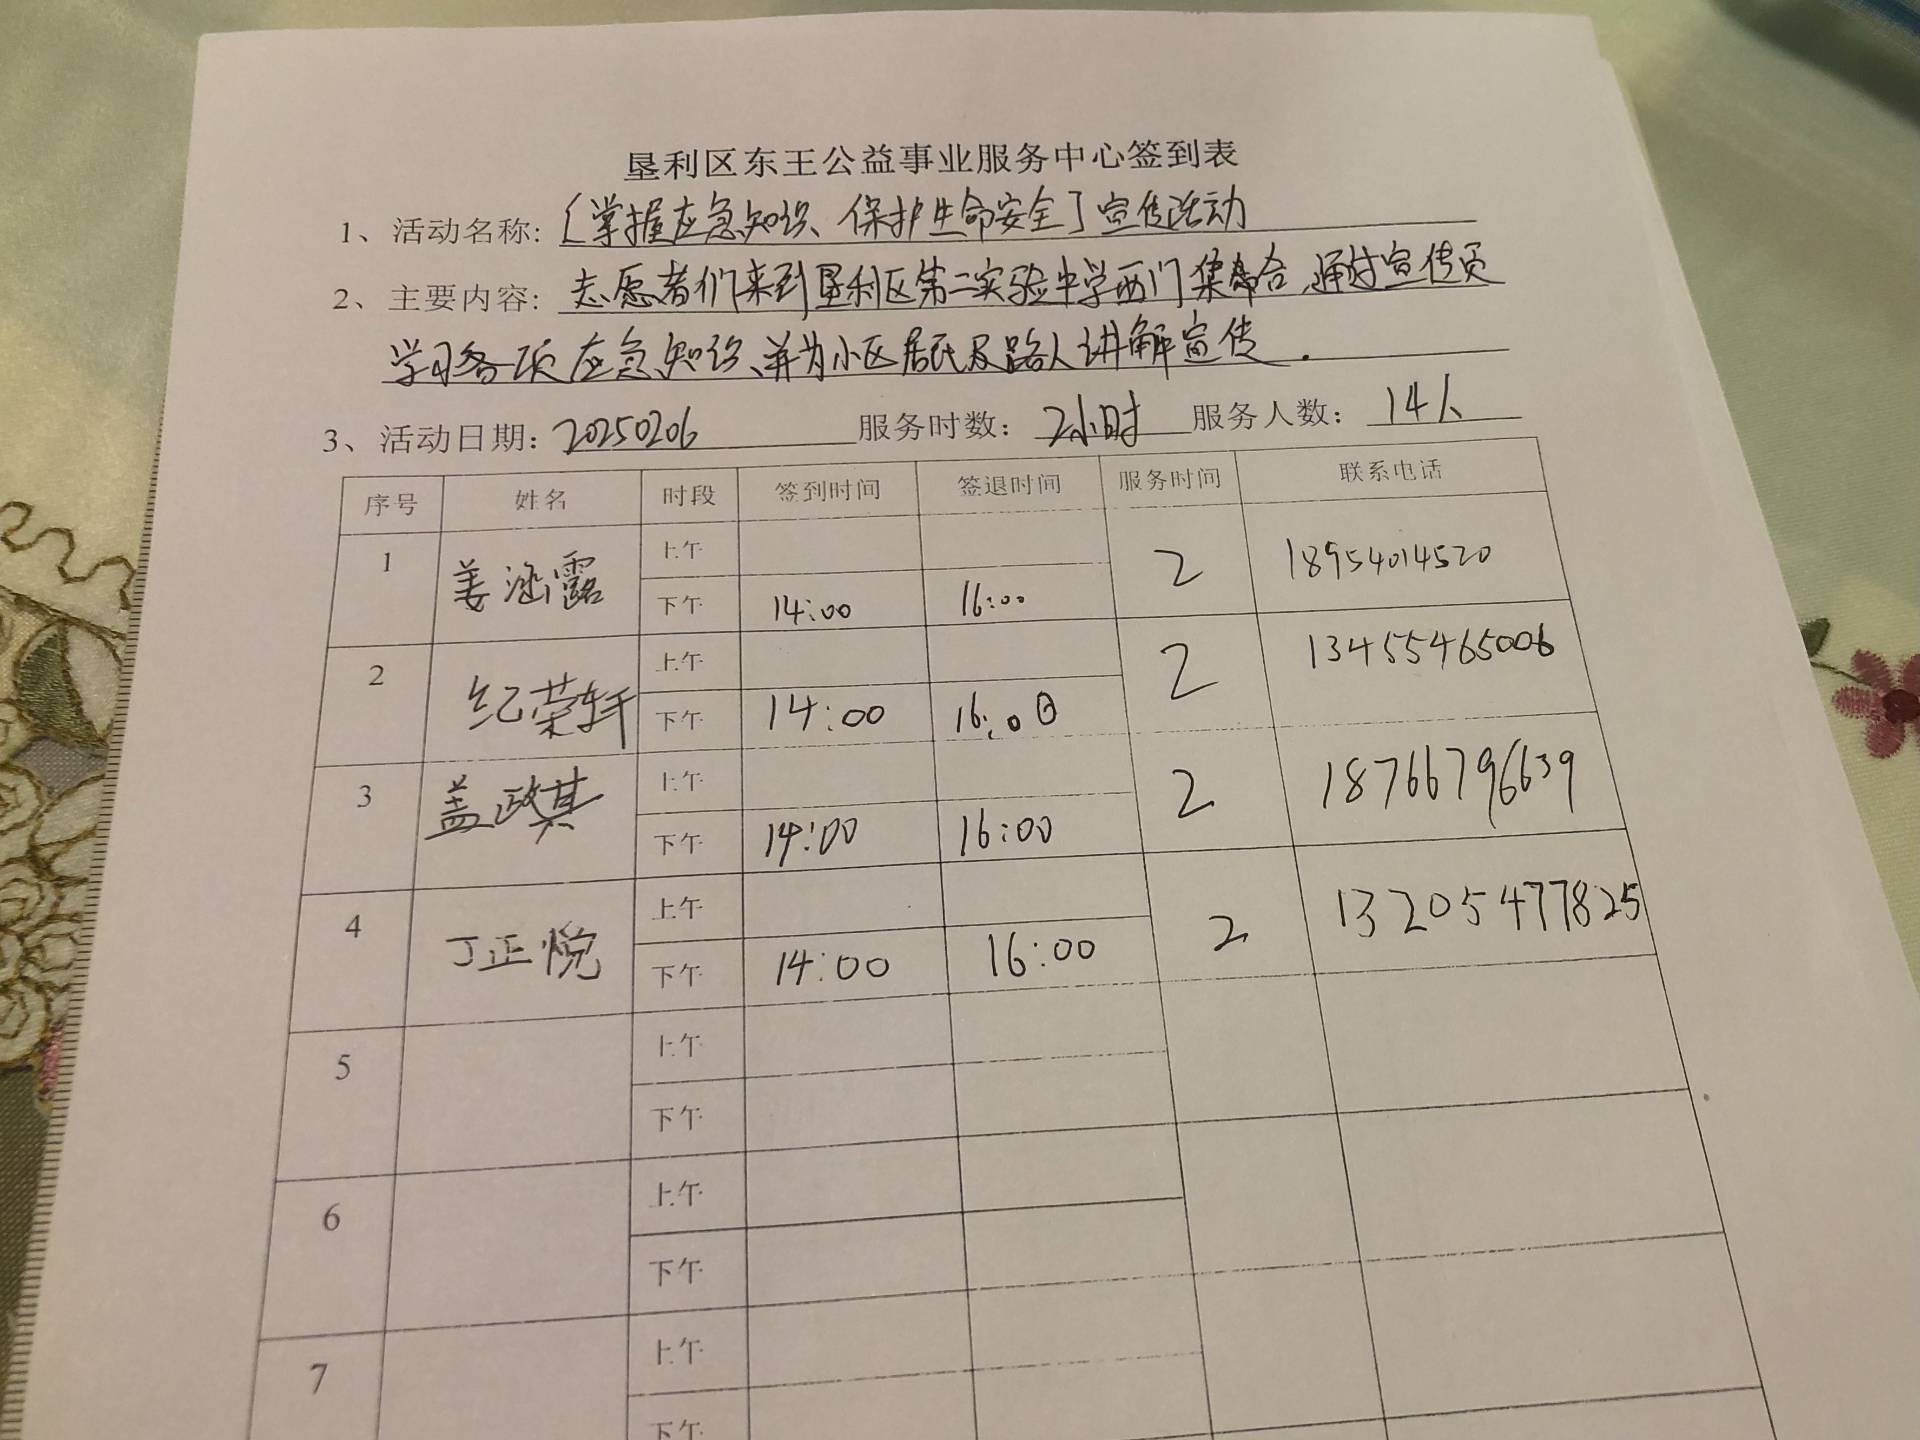 垦利区东王公益事业服务中心签到表
1、活动名称: [掌握应急知识、保护生命安全]宣传活动
2、主要内容: 志愿者们来到垦利区第二实验中学西门集合,通过宣传员
学习各项应急知识、并为小区居民及路人讲解宣传.
3、活动日期: 20250206 服务时数: 2小时 服务人数: 14人
序号 姓名 时段 签到时间 签退时间 服务时间 联系电话
1 姜涵露 上午 2 18954014520
下午 14:00 16:00
2 纪荣轩 上午 2 13455465006
下午 14:00 16:00
3 盖政其 上午 2 18766796639
下午 14:00 16:00
4 丁正悦 上午 2 13205477825
下午 14:00 16:00
5 上午
下午
6 上午
下午
7 上午
下午